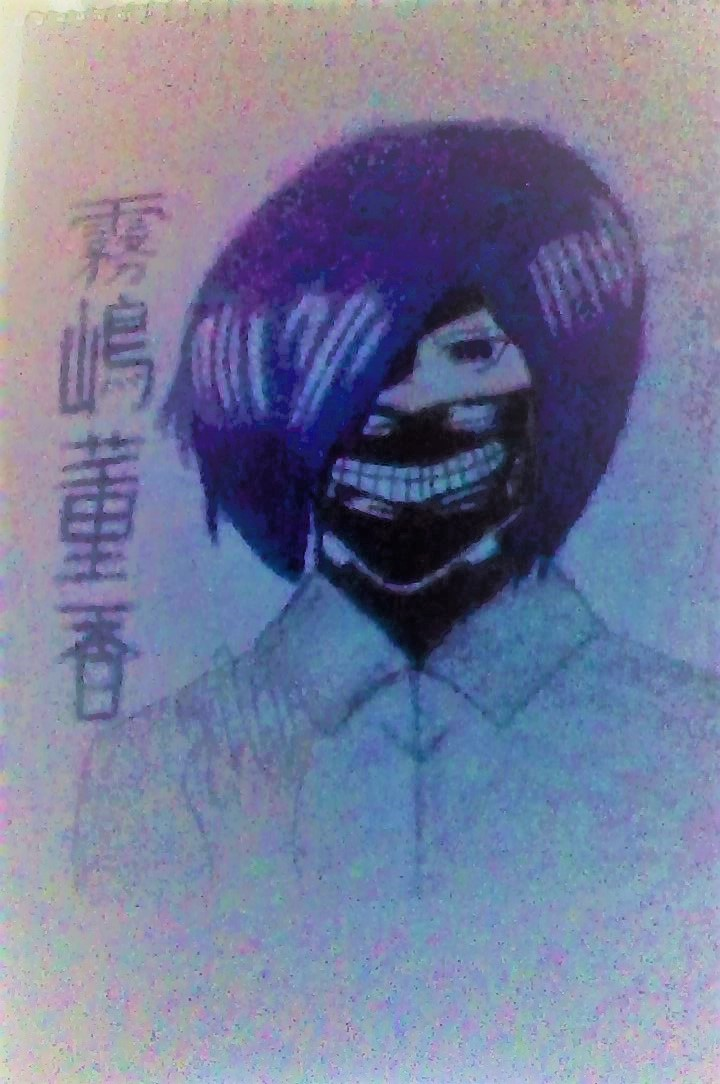 霧嶋董香